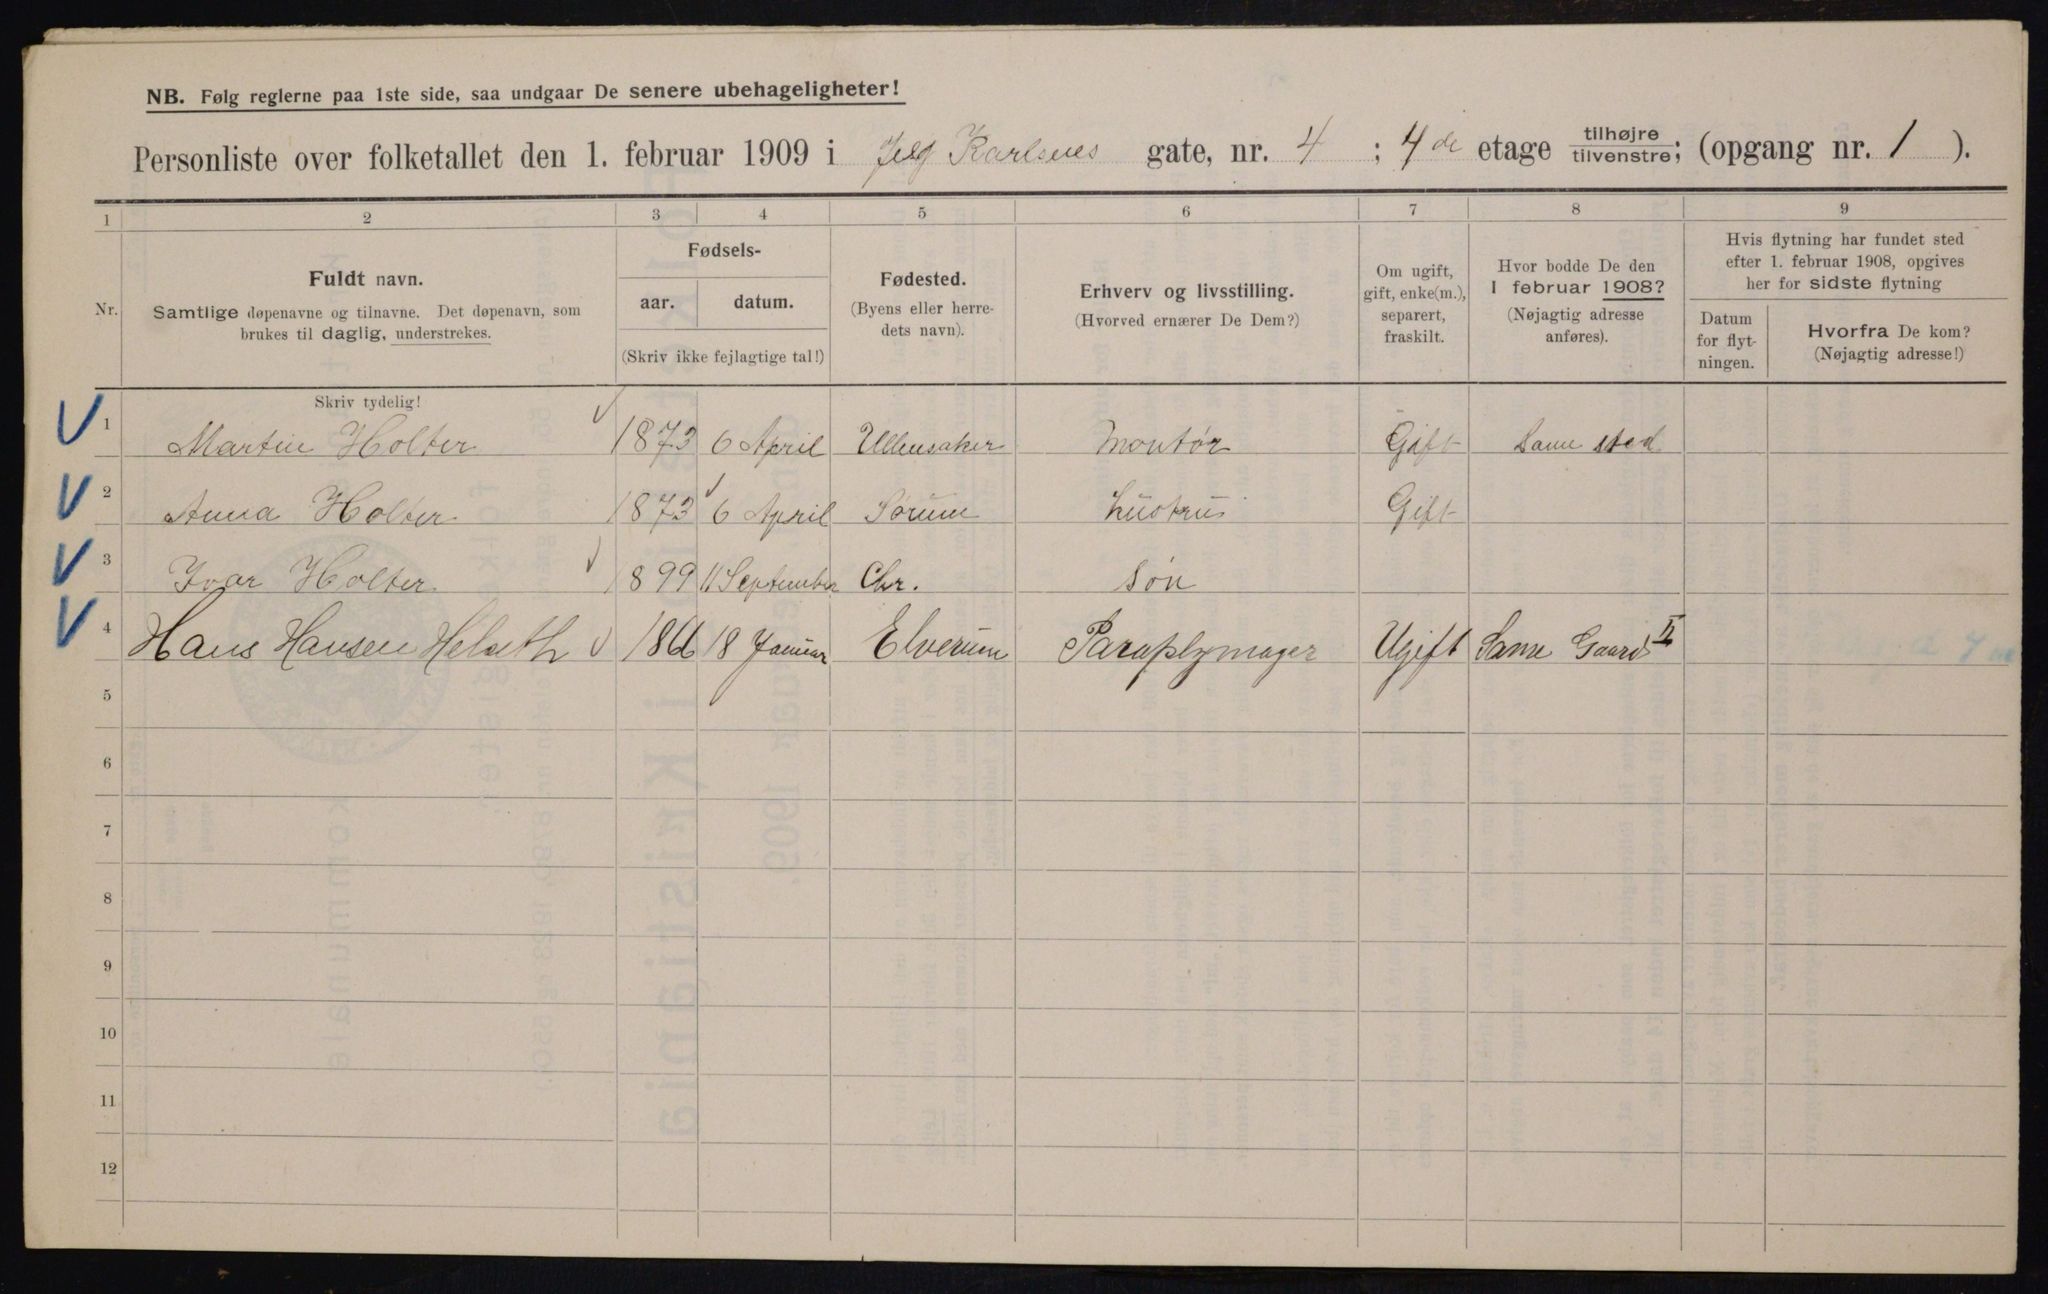 NB. Følg reglerne paa 1ste side, saa undgaar De senere ubehageligheter!
Personliste over folketallet den 1. februar 1909 i Karlsnes gate, nr. 4 ; 4de etage tilhøjre / tilvenstre; (opgang nr. 1 ).
1 2 3 4 5 6 7 8 9
Nr.
Fuldt navn.
Samtlige døpenavne og tilnavne. Det døpenavn, som
brukes til daglig, understrekes.
Fødsels-
aar. datum.
(Skriv ikke fejlagtige tal!)
Fødested.
(Byens eller herre-
dets navn).
Erhverv og livsstilling.
(Hvorved ernærer De Dem?)
Om ugift,
gift, enke(m.),
separert,
fraskilt.
Hvor bodde De den
1 februar 1908?
(Nøjagtig adresse
anføres).
Hvis flytning har fundet sted
efter 1. februar 1908, opgives
her for sidste flytning
Datum
for flyt-
ningen.
Hvorfra De kom?
(Nøjagtig adresse!)
Skriv tydelig!
1 Martin Holter 1873 6 April Ullensaker Montør Gift Samme sted
2 Anna Holter 1873 6 April Sørum Hustru Gift
3 Ivar Holter 1899 11 September Chr. Søn
4 Hans Hansen 18 Januar Elverum Paraplymager Ugift Same Gaard II
5
6
7
8
9
10
11
12